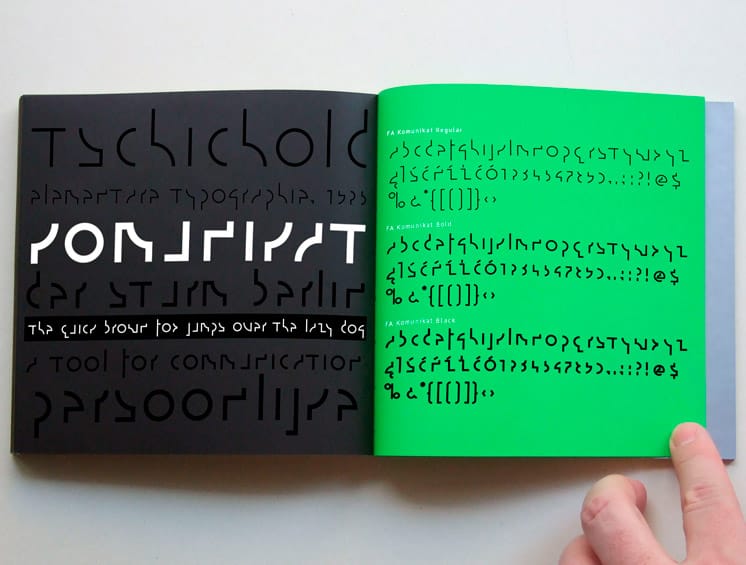 Tschichold
elementare typographie, 1925
komunikat
der sturm berlin
the quick brown fox jumps over the lazy dog
a tool for communication
persoonlijke
FA Komunikat Regular
abcdefghijklmnopqrstuwxyz
1234567890.,:;?!@$
%&*{[()]}‹›
FA Komunikat Bold
abcdefghijklmnopqrstuwxyz
1234567890.,:;?!@$
%&*{[()]}‹›
FA Komunikat Black
abcdefghijklmnopqrstuwxyz
1234567890.,:;?!@$
%&*{[()]}‹›